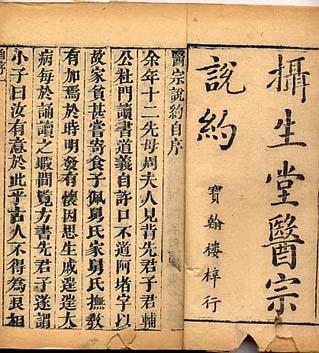 攝生堂醫宗
說約
寶翰樓梓行
醫宗說約自序
余年十二先母周夫人見背先君子君輔
公杜門讀書道義自許口不道阿堵字以
故家貧甚嘗寄食子佩舅氏家舅氏撫教
有加焉於時明發有懷因思生戚遑遑大
病每於誦讀之暇間覽方書先君子遂謂
小子曰汝有意於此乎古人不得為良相